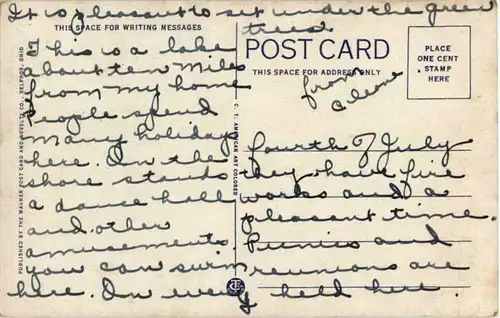 It is pleasant to set under the green
trees
THIS SPACE FOR WRITING MESSAGES
This is a lake
about ten miles
from my home
People spend
many holidays
here. On the
shore stands
a dance hall
and other
amusements.
you can swim
here. On every
PUBLISHED BY THE WAGNER POST CARD AND NOVELTY CO., DELPHOS, OHIO
C. T. AMERICAN ART COLORED
POST CARD
THIS SPACE FOR ADDRESS ONLY
PLACE
ONE CENT
STAMP
HERE
from
Cleone
Fourth of July
they have fire
works and a
pleasant time.
Picnics and
reunions are
held here.